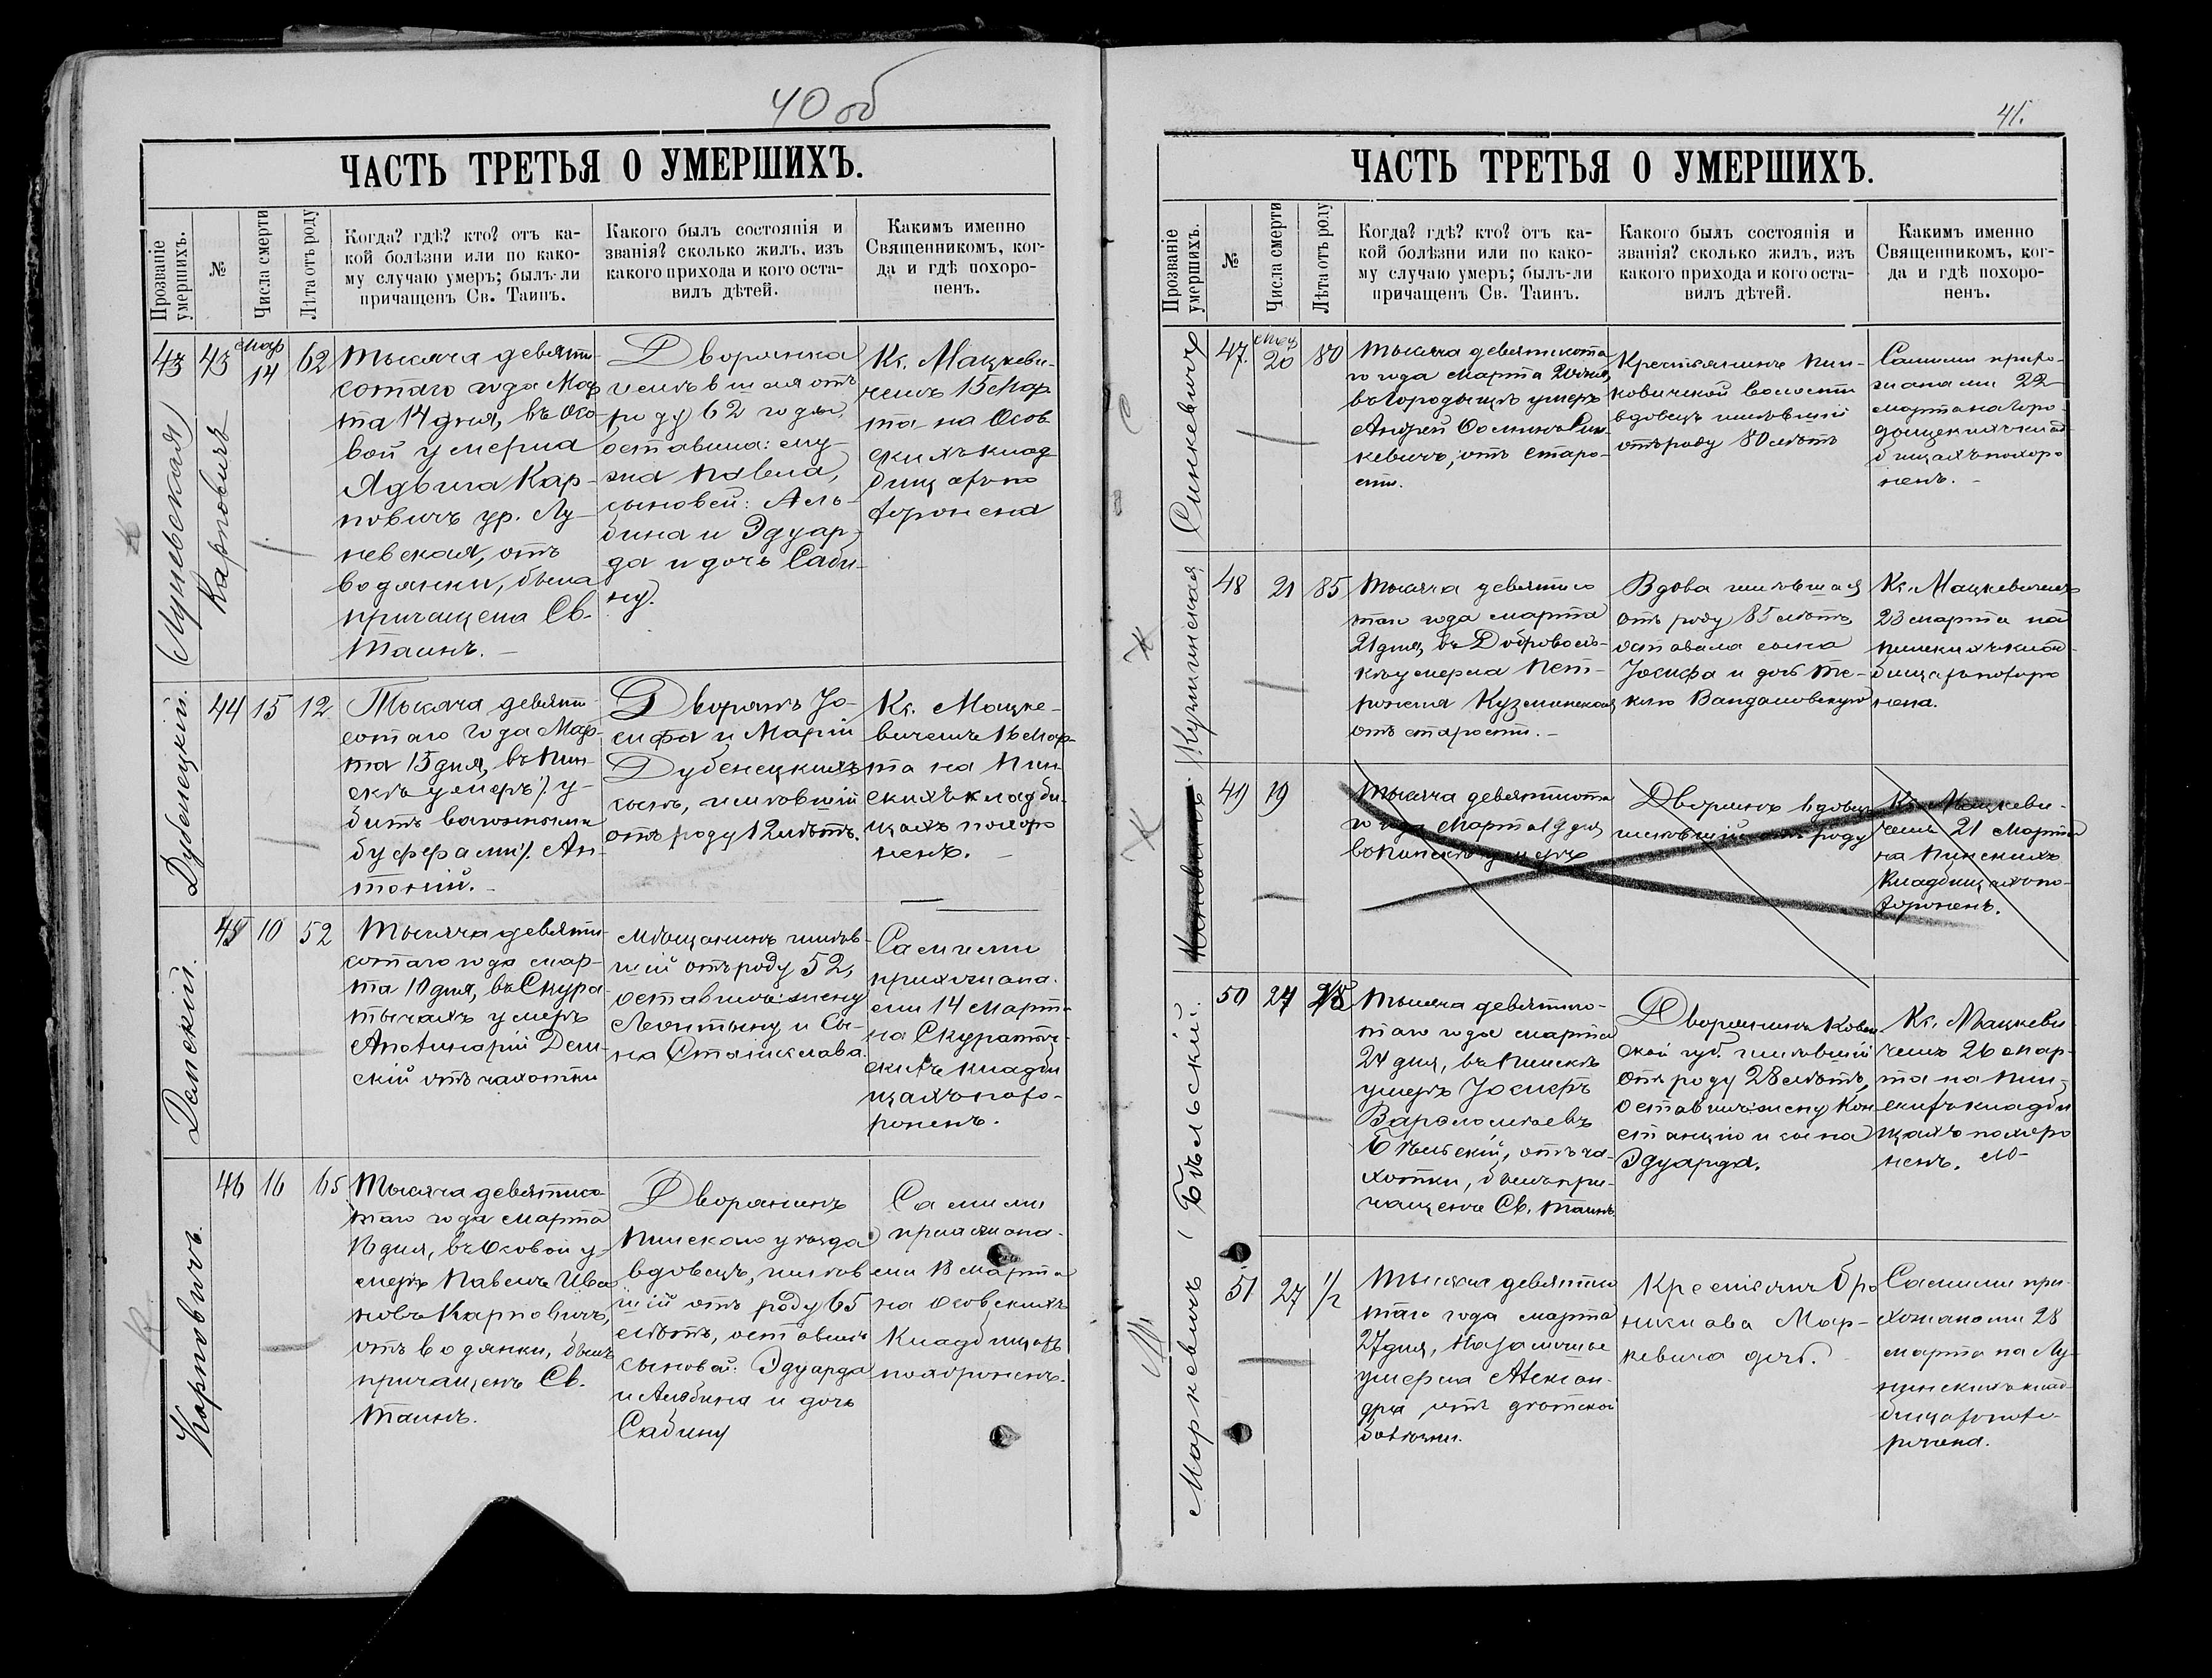 40 об
ЧАСТЬ ТРЕТЬЯ О УМЕРШИХЪ.
Прозваніе умершихъ.
№
Числа смерти
Лѣта отъ роду
Когда? гдѣ? кто? отъ ка-
кой болѣзни или по како-
му случаю умеръ; былъ-ли
причащенъ Св. Таинъ.
Какого былъ состоянія и
званія? сколько жилъ, изъ
какого прихода и кого оста-
вилъ дѣтей.
Какимъ именно
Священникомъ, ког-
да и гдѣ похоро-
ненъ.
Карповичъ
43
43
Мар
14
62
Тысяча девяти
сотаго года Мар
та 14 дня, въ Осо-
вой умерла
Ядвига Кар-
повичъ ур. Лу-
невская, отъ
водянки, была
причащена Св.
Таинъ. –
Дворянка
жившая отъ
роду 62 года,
оставила: му-
жа Павла,
сыновей: Аль-
бина и Эдуар-
да и дочь Саби-
ну.
Кс. Мацкеви-
чемъ 15 Мар
та на Осов
скихъ клад
бищахъ по
хоронена
Дубенецкій.
44
15
12
Тысяча девяти
сотаго года Мар-
та 15 дня, въ Пин-
скѣ умеръ /. у-
битъ вагонными
буферами /. Ан-
тоній. –
Дворянъ Іо-
сифа и Маріи
Дубенецкихъ
сынъ, жившій
отъ роду 12 лѣтъ.
Кс. Мацке-
вичемъ 16 Мар-
та на Пин-
скихъ кладби-
щахъ похоро
ненъ. –
Демскій.
45
10
52
Тысяча девяти
сотаго года мар-
та 10 дня, въ Скура
тычахъ умеръ
Аполинарій Дем-
скій отъ чахотки
Мѣщанинъ жив-
шій отъ роду 52,
оставилъ: жену
Леонтыну и Сы-
на Станислава.
Самими
прихожана.
ми 14 Марта
на Скуратыч-
скихъ кладби
щахъ похо-
роненъ.
Карповичъ.
46
16
65
Тысяча девятисо
таго года марта
16 дня, въ Осовой у-
меръ Павелъ Ива
новъ Карповичъ,
отъ водянки, былъ
причащенъ Св.
Таинъ.
Дворянинъ
Пинскаго уѣзда
вдовецъ, жив
шій отъ роду 65
лѣтъ, оставилъ
сыновей: Эдуарда
и Альбина и дочь
Сабину
Самими
прихожана-
ми 18 марта
на Осовскихъ
кладбищахъ
похороненъ.
41.
ЧАСТЬ ТРЕТЬЯ О УМЕРШИХЪ.
Прозваніе умершихъ.
№
Числа смерти
Лѣта отъ роду
Когда? гдѣ? кто? отъ ка-
кой болѣзни или по како-
му случаю умеръ; былъ-ли
причащенъ Св. Таинъ.
Какого былъ состоянія и
званія? сколько жилъ, изъ
какого прихода и кого оста-
вилъ дѣтей.
Какимъ именно
Священникомъ, ког-
да и гдѣ похоро-
ненъ.
Синкевичъ
47.
20
80
Тысяча девятисота
го года марта 20 дня,
въ Городищѣ умеръ
Андрей Син-
кевичъ, отъ старо-
сти.
Крестьянинъ Пин-
ковичской волости
вдовецъ жившій
отъ роду 80 лѣтъ
Самими прихо-
жанами 22
марта на Горо-
дищскихъ клад
бищахъ похоро
ненъ. –
Кузминская
48
21
85
Тысяча девятисо
таго года марта
21 дня, въ Доброволь-
кѣ умерла Пет-
ронеля Кузминская
отъ старости. –
Вдова жившая
отъ роду 85 лѣтъ
оставила сына
Іосифа и дочь Те-
клю Вандаловскую
Кс. Мацкевичемъ
23 марта на
пинскихъ клад-
бищахъ похоро
нена.
49
19
Тысяча девятисота
го года Марта 19 дня
въ Пинскѣ умеръ
Дворянинъ вдовецъ
жившій отъ роду
Кс. Мацкеви-
чемъ 21 Марта
на Пинскихъ
Кладбищахъ по-
хороненъ.
Бѣльскій.
50
24
28
Тысяча девятисо-
таго года марта
24 дня, въ Пинскѣ
умеръ Іосифъ
Варѳоломѣевъ
Бѣльскій, отъ ча-
хотки, былъ при-
чащенъ Св. Таинъ.
Дворянинъ Ковен-
ской губ. жившій
отъ роду 28 лѣтъ,
оставилъ: жену Кон
станцію и сына
Эдуарда.
Кс. Мацкеви
чемъ 26 мар-
та на Пин-
скихъ кладби
щахъ похоро
ненъ.
Маркевичъ
51
27
1/2
Тысяча девятисо
таго года марта
27 дня,
умерла Алексан-
дра отъ дѣтской
болѣзни.
Крестьянъ Бро
нислава Мар-
кевича дочь.
Самими при-
хожанами 28
марта на Лу-
нинскихъ клад-
бищахъ похо-
ронена.